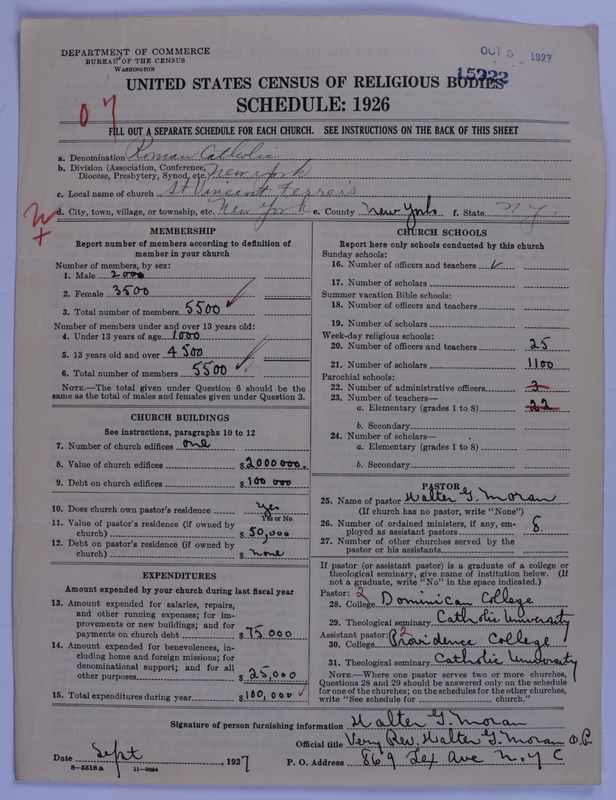 DEPARTMENT OF COMMERCE
BUREAU OF THE CENSUS
WASHINGTON
OCT 5 1927
15922
UNITED STATES CENSUS OF RELIGIOUS BODIES
SCHEDULE: 1926
FILL OUT A SEPARATE SCHEDULE FOR EACH CHURCH. SEE INSTRUCTIONS ON THE BACK OF THIS SHEET
a. Denomination Roman Catholic
b. Division (Association, Conference, Diocese, Presbytery, Synod, etc. New York
c. Local name of church St Vincent Ferrer's
d. City, town, village, or township, etc. New York e. County New York f. State N.Y.
MEMBERSHIP
Report number of members according to definition of
member in your church
Number of members, by sex:
1. Male 2000
2. Female 3500
3. Total number of members 5500
Number of members under and over 13 years old:
4. Under 13 years of age 1000
5. 13 years old and over 4500
6. Total number of members 5500
NOTE.—The total given under Question 6 should be the
same as the total of males and females given under Question 3.
CHURCH BUILDINGS
See instructions, paragraphs 10 to 12
7. Number of church edifices one
8. Value of church edifices $2000000.
9. Debt on church edifices $100000
10. Does church own pastor's residence yes
Yes or No
11. Value of pastor's residence (if owned by
church) $50,000
12. Debt on pastor's residence (if owned by
church) $none
EXPENDITURES
Amount expended by your church during last fiscal year
13. Amount expended for salaries, repairs,
and other running expenses; for im-
provements or new buildings; and for
payments on church debt $75000
14. Amount expended for benevolences, in-
cluding home and foreign missions; for
denominational support; and for all
other purposes $25,000
15. Total expenditures during year $100,000
CHURCH SCHOOLS
Report here only schools conducted by this church
Sunday schools:
16. Number of officers and teachers
17. Number of scholars
Summer vacation Bible schools:
18. Number of officers and teachers
19. Number of scholars
Week-day religious schools:
20. Number of officers and teachers 25
21. Number of scholars 1100
Parochial schools:
22. Number of administrative officers 3
23. Number of teachers—
a. Elementary (grades 1 to 8) 22
b. Secondary
24. Number of scholars—
a. Elementary (grades 1 to 8)
b. Secondary
PASTOR
25. Name of pastor Walter G. Moran
(If church has no pastor, write "None")
26. Number of ordained ministers, if any, em-
ployed as assistant pastors 8.
27. Number of other churches served by the
pastor or his assistants
If pastor (or assistant pastor) is a graduate of a college or
theological seminary, give name of institution below. (If
not a graduate, write "No" in the space indicated.)
Pastor: 2
28. College Dominican College
29. Theological seminary Catholic University
Assistant pastor: 2
30. College Providence College
31. Theological seminary Catholic University
NOTE.—Where one pastor serves two or more churches,
Questions 28 and 29 should be answered only on the schedule
for one of the churches; on the schedules for the other churches,
write "See schedule for church."
Signature of person furnishing information Walter G. Moran
Official title Very Rev. Walter G. Moran O.P.
Date Sept, 1927 P. O. Address 869 Lex Ave N.Y.C
8—5518a 11—9034